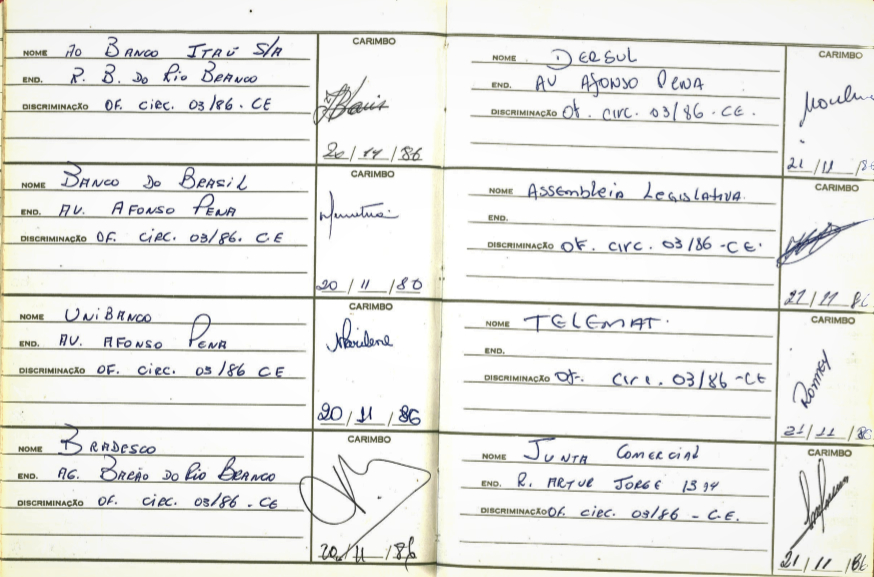 NOME AO BANCO ITAÚ S/A
END. R. B. DO RIO BRANCO
DISCRIMINAÇÃO OF. CIRC. 03/86 - CE
CARIMBO
20/11/86
NOME BANCO DO BRASIL
END. AV. AFONSO PENA
DISCRIMINAÇÃO OF. CIRC. 03/86. CE
CARIMBO
20/11/86
NOME UNIBANCO
END. AV. AFONSO PENA
DISCRIMINAÇÃO OF. CIRC. 03/86 CE
CARIMBO
Marilene
20/11/86
NOME BRADESCO
END. AG. BARÃO DO RIO BRANCO
DISCRIMINAÇÃO OF. CIRC. 03/86 - CE
CARIMBO
20/11/86
NOME DERSUL
END. AV AFONSO PENA
DISCRIMINAÇÃO OF. CIRC. 03/86 - CE.
CARIMBO
21/11/86
NOME ASSEMBLEIA LEGISLATIVA.
END.
DISCRIMINAÇÃO OF. CIRC. 03/86 - CE.
CARIMBO
21/11/86
NOME TELEMAT.
END.
DISCRIMINAÇÃO OF. CIRC. 03/86 - CE
CARIMBO
21/11/86
NOME JUNTA COMERCIAL
END. R. ARTUR JORGE
DISCRIMINAÇÃO OF. CIRC. 03/86 - CE.
CARIMBO
21/11/86